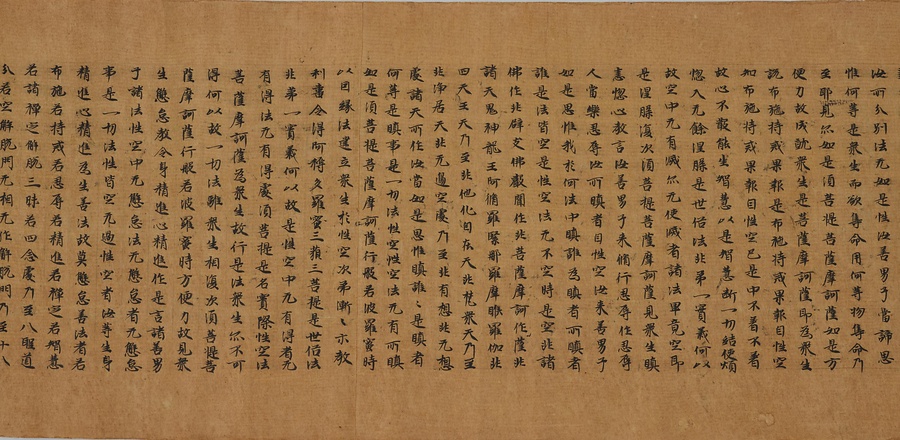 汝所分別法无如是性汝善男子當諦思
惟何等是衆生而欲奪命用何等物奪命乃
至耶見尒如是須菩提菩薩摩訶薩如是方
便力故成就衆生是菩薩摩訶薩耳為衆生
說布施持戒果報是布施持戒果報自性空
知布施持戒果報自性空已是中不着不着
故心不散能生智慧以是智慧断一切結使煩
惱入无餘涅槃是世俗法非第一實義何以
故空中无有滅尒无使滅者諸法畢竟空耳
是涅槃復次須菩提菩薩摩訶薩見衆生瞋
恚惱心教言汝善男子来脩行忍辱作忍辱
人當樂忍辱汝所瞋者自性空汝来善男子
如是思惟我於何法中瞋誰為瞋者所瞋者
誰是法皆空是性空法无不空時是空非諸
佛作非辟支佛聲聞作非菩薩摩訶作薩非
諸天鬼神龍王阿脩羅緊那羅摩睺羅伽非
四天王天乃至非他化自在天非梵衆天乃至
非淨居天非无邊空處天乃至有想非无想
處諸天所作汝當如是思惟瞋誰〻是瞋者
何等是瞋事是一切法性空性空法无有所瞋
如是須菩提菩薩摩訶薩行般若波羅蜜時
以因緣法建立衆生於性空次弟漸〻示教
利喜令得阿耨多羅蜜三藐三菩提是世俗法
非弟一實義何以故是性空中无有得者无
有得法无有得處須菩提是名實際性空法
菩薩摩訶薩為衆生故行是法衆生尒不可
得何以故一切法離衆生相復次須菩提菩
薩摩訶薩行般若波羅蜜時方便力故見衆
生懈怠教令身精進心精進作是言諸善男
子諸法性空中无懈怠法无懈怠者无懈怠
事是一切法性皆空无過性空者汝等生身
精進心精進為生善法故莫懈怠善法者若
布施若持戒若忍辱若精進若禪定若智慧
若諸禪定解脫三昧若四念處乃至八聖道
分若空解脫門无相无作解脫門乃至十八